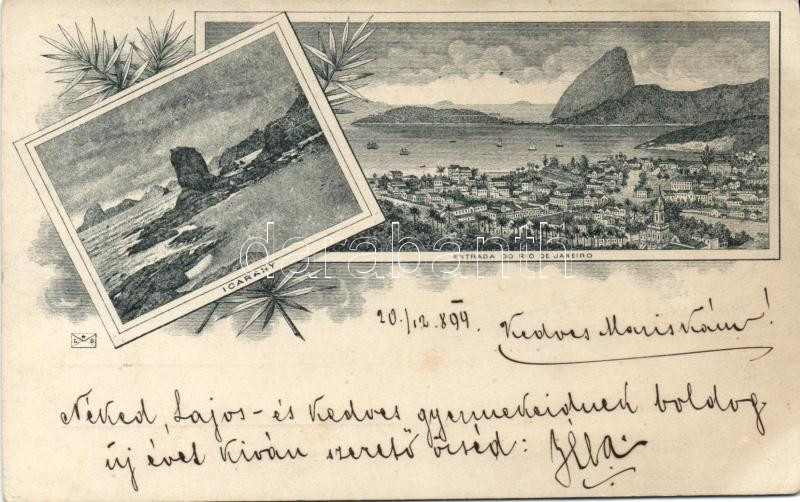 ICARAHY
ENTRADA DO RIO DE JANEIRO
darabanth
20/12. 899.
Kedves Mariskám!
Néked, Lajos- és kedves gyermekeidnek boldog
új évet kiván szerető öcséd: Béla